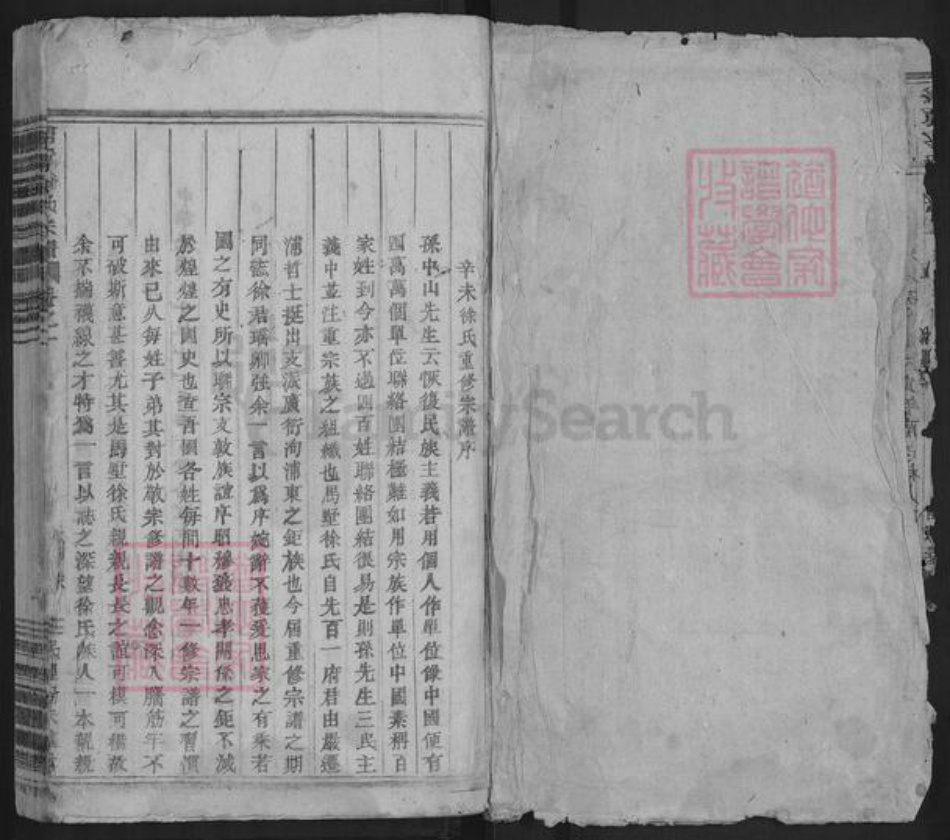 辛未徐氏重修宗譜序
孫中山先生云恢復民族主義若用個人作單位像中國便有
四萬萬個單位聯絡團結極難如用宗族作單位中國素稱百
家姓到今亦不過四百姓聯絡團結很易是則孫先生三民主
義中並注重宗族之組織也馬墅徐氏自先百一府君由嚴遷
浦哲士挺出支派廣衍洵浦東之鉅族也今屆重修宗譜之期
同宗徐君瑤卿強余一言以爲序婉辭不獲爰思家之有乘若
國之有史所以聯宗支敦族誼序昭穆盛忠孝關係之鉅不減
於煌煌之國史也查吾國各姓每間十數年一修宗譜之習慣
由來已久每姓子弟其對於敬宗修譜之觀念深入腦筋牢不
可破斯意甚善尤其是馬墅徐氏親親長長之誼可模可楷故
余不揣襪線之才特爲一言以誌之深望徐氏族人一本親親
譜學會
特藏
FamilySearch